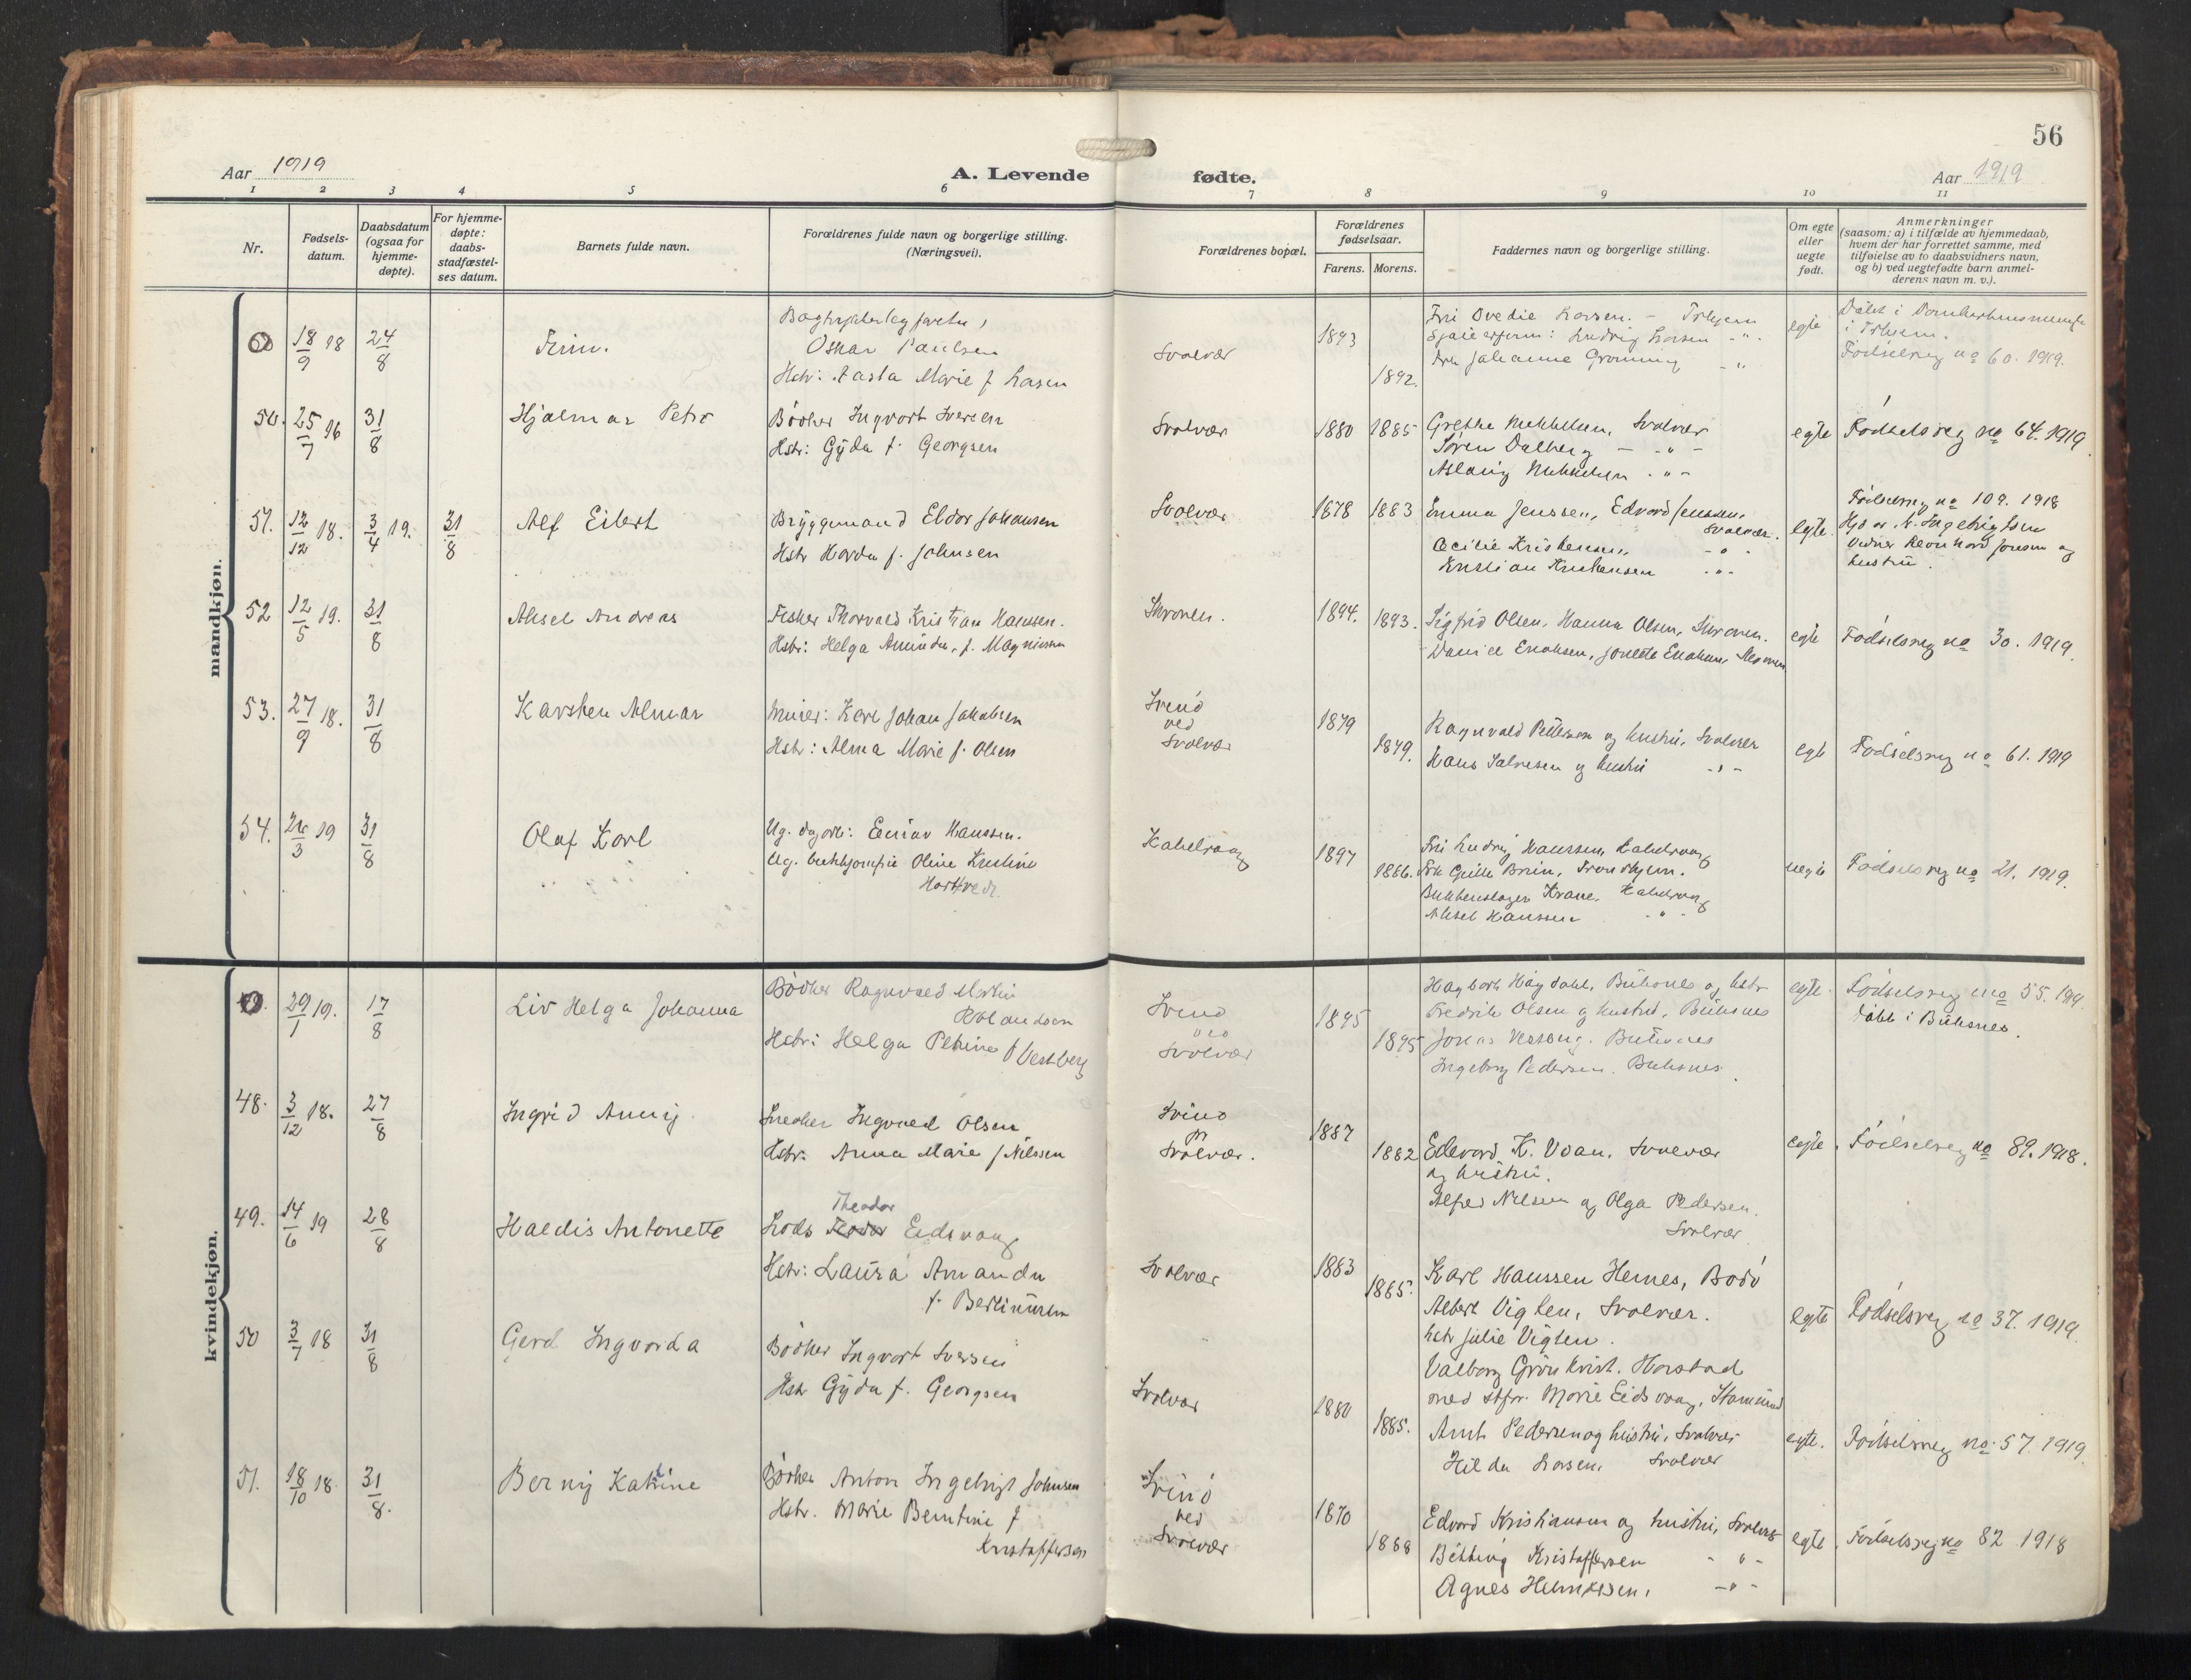 56
Aar 1919
A. Levende fødte.
Aar 1919
1 2 3 4 5 6 7 8 9 10 11
Nr.
Fødselsdatum.
Daabsdatum (ogsaa for hjemmedøpte).
For hjemmedøpte: daabsstadfæstelses datum.
Barnets fulde navn.
Forældrenes fulde navn og borgerlige stilling. (Næringsvei).
Forældrenes bopæl.
Forældrenes fødselsaar.
Farens. Morens.
Faddernes navn og borgerlige stilling.
Om egte eller uegte født.
Anmerkninger
(saasom: a) i tilfælde av hjemmedaab,
hvem der har forrettet samme, med
tilføielse av to daabsvidners navn,
og b) ved uegtefødte barn anmelderens navn m. v.).
mandkjøn.
18/9 18 24/8 Finn.
Oskar Paulsen
Hstr: Aasta Marie f Larsen
Svolvær 1893 1892.
Ludvig Larsen
Johanne Grønning
egte
Fødselsreg no 60. 1919.
50. 25/7 16 31/8 Hjalmar Petro
Bødker Ingvort Iversen
Hstr: Gyda f. Georgsen
Svolvær 1880 1885
Grethe Mikkelsen, Svolvær
Søren Dalberg — " —
Aslaug Mikkelsen - " -
egte Fødselsreg no 64. 1919
51. 12/12 18. 3/4 19. 31/8 Alf Eilert
Bryggemand Eldor Johansen
Hstr Horda f. Johnsen
Svolvær 1878 1883
Emma Jenssen, Edvard Jenssen,
Svolvær.
Cecilie Kristensen - " -
Kristian Kristensen - " -
egte.
Fødselsreg no 109. 1918
Hjd av N. Ingebrigtsen
Vidner Leonhard Jonsen og
hustru.
52 12/5 19. 31/8 Aksel Andreas
Fisker Thorvald Kristian Hanssen.
Hstr: Helga Amunda, f. Magnussen
Skroven. 1894. 1893.
Sigfrid Olsen, Hanna Olsen, Skroven.
Daniel Enoksen, Jonette Enoksen, Skroven
egte Fødselsreg no 30. 1919.
53. 27/9 18. 31/8 Karsten Almar
Murer: Karl Johan Jakobsen
Hstr: Alma Marie f. Olsen
Svinø
ved
Svolvær
1879 1879.
Ragnvald Pettersen og hustru, Svolvær
Hans Salvesen og hustru - " -
egte Fødselsreg no 61. 1919
54. 26/3 19 31/8 Olaf Karl
Ug. dagarb: Einar Hanssen.
Ug. kokkjomfru Oline Kristine
Hartvedt.
Kabelvaag 1897 1886.
Ludvig Hanssen, Kabelvaag
Brun, Trondhjem.
Blikkenslager Krane, Kabelvaag
Aksel Hanssen - " -
uegte Fødselsreg no 21. 1919.
kvindekjøn.
29/1 19. 17/8 Liv Helga Johanna
Bødker Ragnvald Martin
Rolandsen
Hstr: Helga Petrine f Vestberg
Svinø
ved
Svolvær
1895 1895
Hagbart Høgdahl, Buksnes og hstr
Fredrik Olsen og hustru, Buksnes
Jonas Vestberg. Buksnes
Ingeborg Pedersen. Buksnes.
egte. Fødselsreg no 55. 1919
Døbt i Buksnes.
48. 3/12 18. 27/8 Ingrid Annij
Snedker Ingvald Olsen
Hstr: Anna Marie f Nilssen
Svinø
pr
Svolvær.
1887 1882
Edevard K. Voan, Svolvær
og hustru.
Alfred Nilsen og Olga Pedersen.
Svolvær
egte. Fødselsreg no 89. 1918.
49. 14/6 19 28/8 Haldis Antonette
Theodor
Lods Teodor Eidsvaag
Hstr: Laura Amanda
f. Bertinusen
Svolvær 1883 1885.
Karl Hanssen Hernes, Bodø
Albert Vigten, Svolvær.
hstr Julie Vigten.
Valborg Grønkvist. Harstad
med stfr. Marie Eidsvaag, Stamsund
egte Fødselsreg no 37. 1919.
50 3/7 18 31/8 Gerd Ingvorda
Bødker Ingvort Iversen
Hstr Gyda f. Georgsen
Svolvær 1880 1885.
Arnt Pedersen og hustru, Svolvær
Hilda Larsen, Svolvær
egte. Fødselsreg no. 57. 1919
51. 18/10 18. 31/8. Bernij Katrine
Bødker Anton Ingebrigt Johnsen
Hstr. Marie Berntine f
Kristoffersen
Svinø
ved
Svolvær
1870 1868
Edvard Kristiansen og hustru, Svolvær
Kristoffersen - " -
Agnes Helmersen, - " -
egte. Fødselsreg no 82 1918